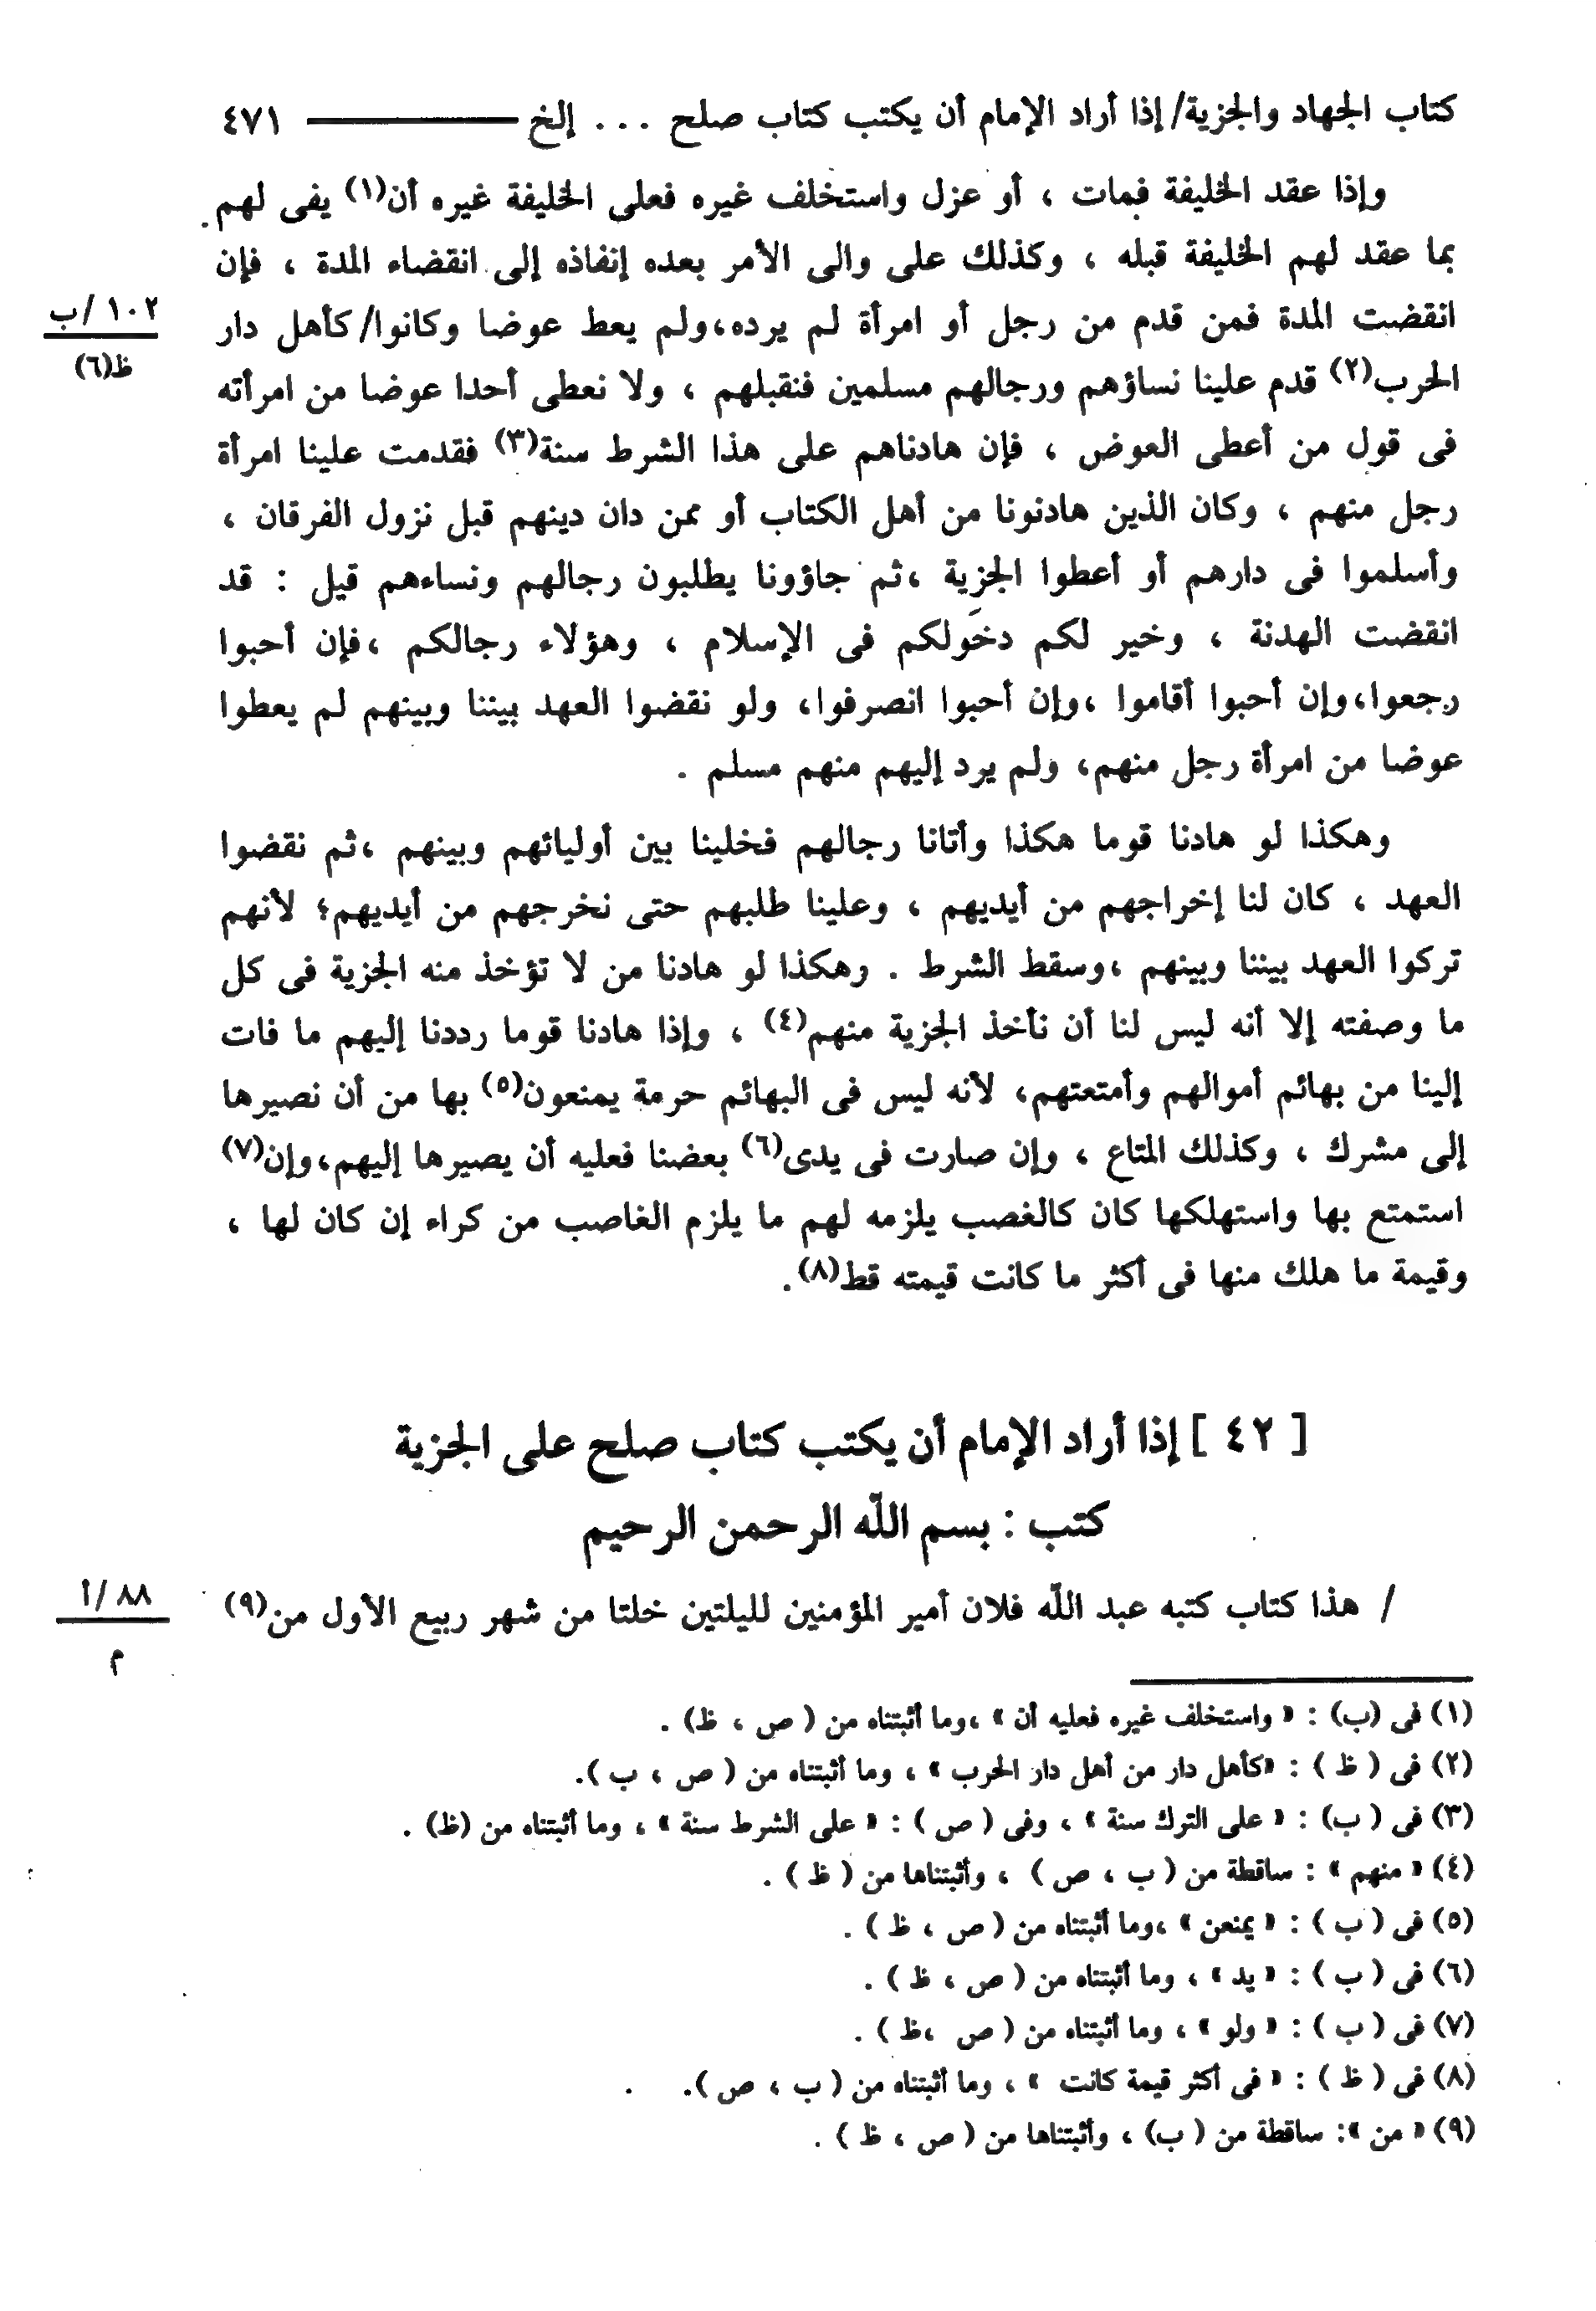 كتاب الجهاد والجزية/ إذا أراد الإمام أن يكتب كتاب صلح ... إلخ ٤٧١
وإذا عقد الخليفة فمات ، أو عزل واستخلف غيره فعلى الخليفة غيره أن(١) يفى لهم
بما عقد لهم الخليفة قبله ، وكذلك على والى الأمر بعده إنفاذه إلى انقضاء المدة ، فإن
انقضت المدة فمن قدم من رجل أو امرأة لم يرده،ولم يعط عوضا وكانوا/ كأهل دار
١٠٢ /ب
ظ(٦)
الحرب(٢) قدم علينا نساؤهم ورجالهم مسلمين فنقبلهم ، ولا نعطى أحدا عوضا من امرأته
فى قول من أعطى العوض ، فإن هادناهم على هذا الشرط سنة(٣) فقدمت علينا امرأة
رجل منهم ، وكان الذين هادنونا من أهل الكتاب أو ممن دان دينهم قبل نزول الفرقان ،
وأسلموا فى دارهم أو أعطوا الجزية ،ثم جاؤونا يطلبون رجالهم ونساءهم قيل : قد
انقضت الهدنة ، وخير لكم دخولكم فى الإسلام ، وهؤلاء رجالكم ،فإن أحبوا
رجعوا،وإن أحبوا أقاموا ،وإن أحبوا انصرفوا، ولو نقضوا العهد بيننا وبينهم لم يعطوا
عوضا من امرأة رجل منهم، ولم يرد إليهم منهم مسلم .
وهكذا لو هادنا قوما هكذا وأتانا رجالهم فخلينا بين أوليائهم وبينهم ،ثم نقضوا
العهد ، كان لنا إخراجهم من أيديهم ، وعلينا طلبهم حتى نخرجهم من أيديهم؛ لأنهم
تركوا العهد بيننا وبينهم ،وسقط الشرط . وهكذا لو هادنا من لا تؤخذ منه الجزية فى كل
ما وصفته إلا أنه ليس لنا أن نأخذ الجزية منهم(٤) ، وإذا هادنا قوما رددنا إليهم ما فات
إلينا من بهائم أموالهم وأمتعتهم، لأنه ليس فى البهائم حرمة يمنعون(٥) بها من أن نصيرها
إلى مشرك ، وكذلك المتاع ، وإن صارت فى يدى(٦) بعضنا فعليه أن يصيرها إليهم،وإن(٧)
استمتع بها واستهلكها كان كالغصب يلزمه لهم ما يلزم الغاصب من كراء إن كان لها ،
وقيمة ما هلك منها فى أكثر ما كانت قيمته قط(٨).
[ ٤٢ ] إذا أراد الإمام أن يكتب كتاب صلح على الجزية
كتب : بسم اللّه الرحمن الرحيم
/ هذا كتاب كتبه عبد اللّه فلان أمير المؤمنين لليلتين خلتا من شهر ربيع الأول من(٩)
٨٨ /أ
م
(١) فى (ب) : « واستخلف غيره فعليه أن » ،وما أثبتناه من ( ص ، ظ) .
(٢) فى ( ظ ) : «كأهل دار من أهل دار الحرب » ، وما أثبتناه من ( ص ، ب ).
(٣) فى ( ب) : « على الترك سنة » ، وفى ( ص ) : « على الشرط سنة » ، وما أثبتناه من (ظ) .
(٤) « منهم » : ساقطة من ( ب ، ص ) ، وأثبتناها من ( ظ ) .
(٥) فى ( ب ) : « يمنعن » ،وما أثبتناه من ( ص ، ظ ) .
(٦) فى ( ب ) : « يد » ، وما أثبتناه من ( ص ، ظ ) .
(٧) فى ( ب ) : « ولو » ، وما أثبتناه من ( ص ،ظ ) .
(٨) فى ( ظ ) : « فى أكثر قيمة كانت » ، وما أثبتناه من ( ب ، ص ).
(٩) « من »: ساقطة من ( ب) ، وأثبتناها من ( ص ، ظ ) .